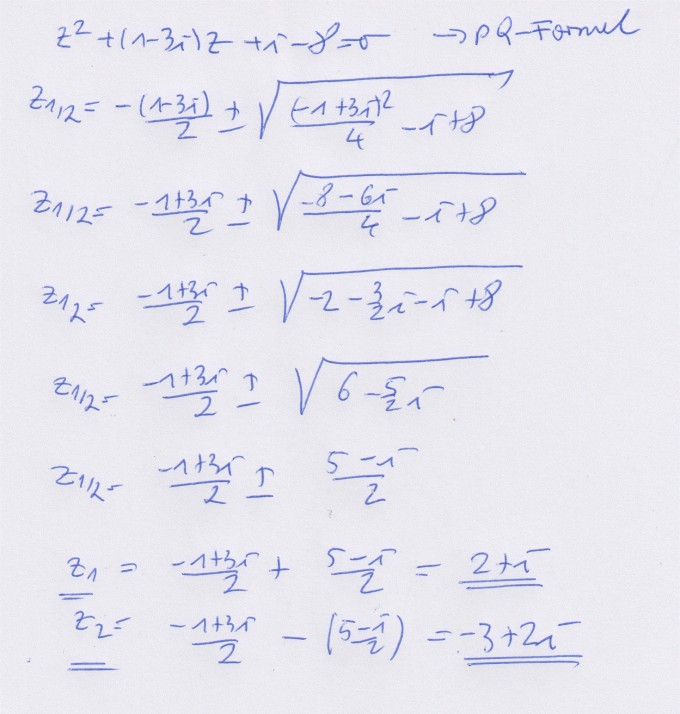 z² + (1-3i)z + i - 8 = 0 → PQ-Formel
z1/2 = -(1-3i)/2 ± √((-1+3i)²/4 - i + 8)
z1/2 = (-1+3i)/2 ± √((-8-6i)/4 - i + 8)
z1,2 = (-1+3i)/2 ± √(-2 - 3/2 i - i + 8)
z1/2 = (-1+3i)/2 ± √(6 - 5/2 i)
z1/2 = (-1+3i)/2 ± (5-i)/2
z1 = (-1+3i)/2 + (5-i)/2 = 2+i
z2 = (-1+3i)/2 - ((5-i)/2) = -3+2i